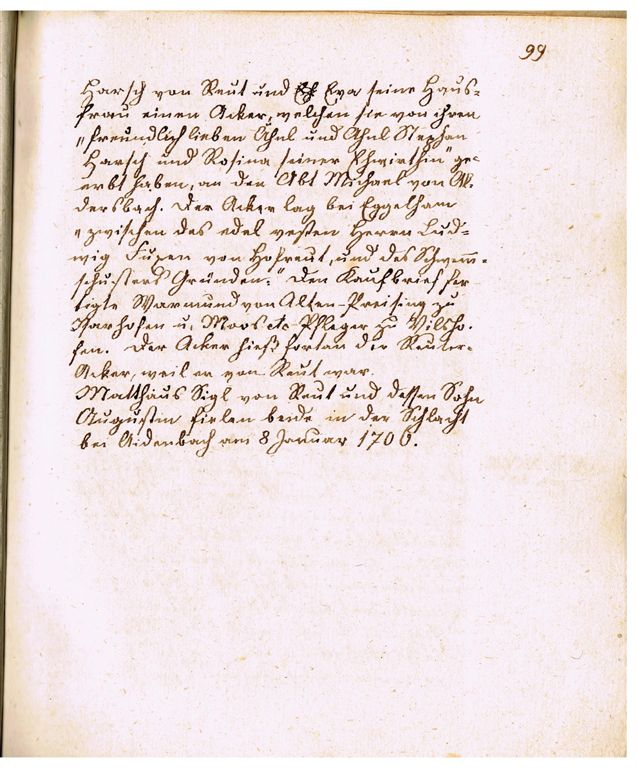 99
Harsch von Reut und Eva seine Haus=
frau einen Acker, welchen sie von ihren
„freundlich lieben Ähnl und Ahnl Stephan
Harsch und Rosina seiner Ehwirthin" ge=
erbt haben, an den Abt Michael von Al=
dersbach. Der Acker lag bei Eggelham
„zwischen des edel vesten Herrn Lud=
wig Fuxen von Hofreut, und des Schwemm=
schusters Gründen." Den Kaufbrief fer=
tigte Warmund von Alten-Preising zu
Isarhofen u. Moos etc Pfleger zu Vilsho=
fen. Der Acker hieß fortan der Reuter=
Acker, weil er von Reut war.
Matthäus Sigl von Reut und dessen Sohn
Augustin fielen beide in der Schlacht
bei Aidenbach am 8 Januar 1706.